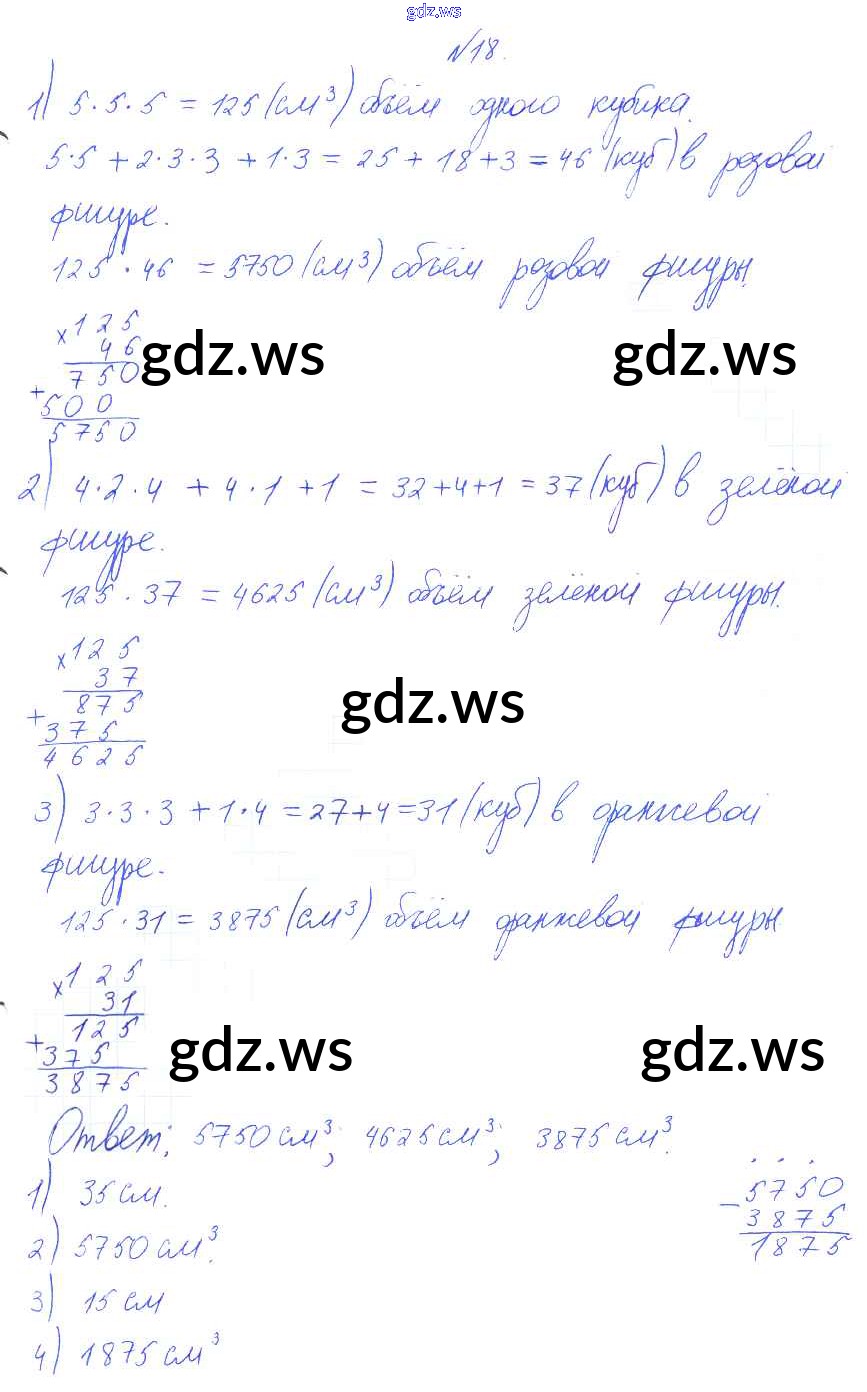 gdz.ws
№18.
1) 5·5·5 = 125 (см³) объём одного кубика.
5·5 + 2·3·3 + 1·3 = 25 + 18 + 3 = 46 (куб) в розовой
фигуре.
125 · 46 = 5750 (см³) объём розовой фигуры.
×125
46
gdz.ws gdz.ws
750
+
500
5750
2) 4·2·4 + 4·1 + 1 = 32+4+1 = 37 (куб) в зелёной
фигуре.
125 · 37 = 4625 (см³) объём зелёной фигуры.
×125
37
875
gdz.ws
+
375
4625
3) 3·3·3 + 1·4 = 27+4 = 31 (куб) в оранжевой
фигуре.
125 · 31 = 3875 (см³) объём оранжевой фигуры
×125
31
125
+
375
gdz.ws gdz.ws
3875
Ответ: 5750 см³; 4625 см³; 3875 см³.
1) 35 см.
2) 5750 см³.
3) 15 см
4) 1875 см³
5750
-
3875
1875